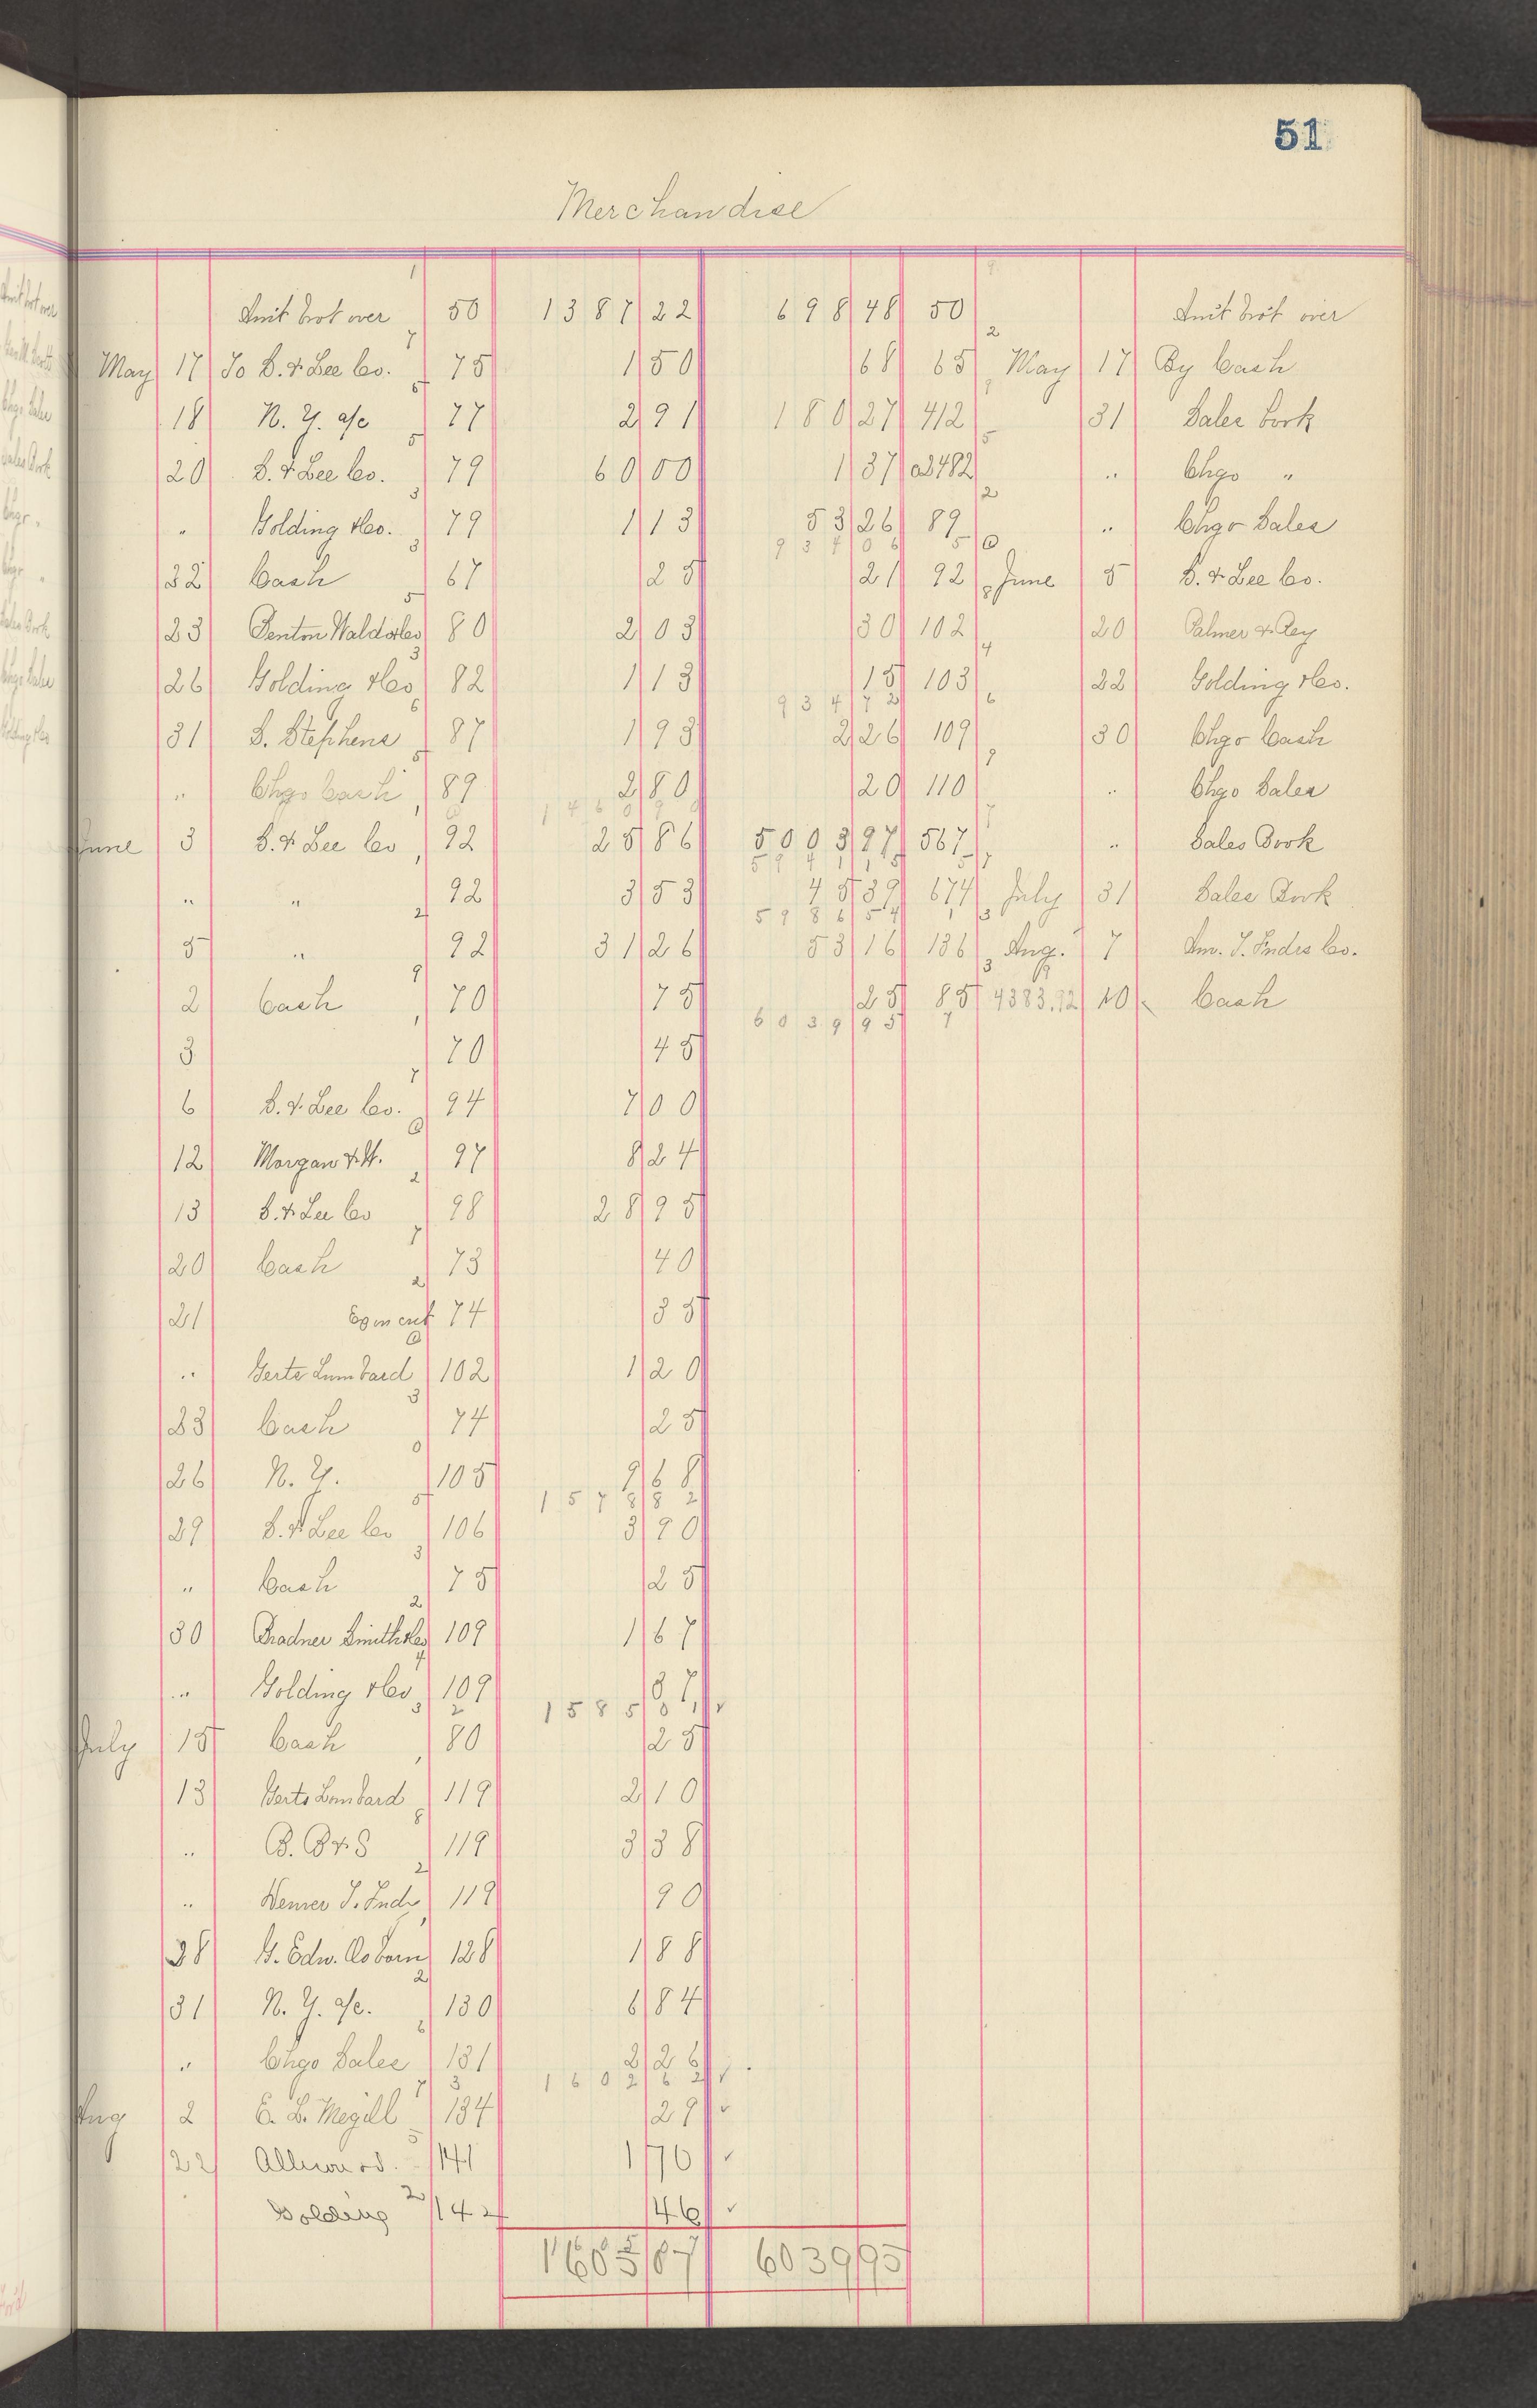 51
Merchandise
Amt brot over 50 1387 22 698 48 50 Amt brot over
May 17 To S. & Lee Co. 75 1 50 68 65 May 17 By Cash
18 N. Y. a/c 77 2 91 180 27 412 31 Sales Book
20 S. & Lee Co. 79 60 00 1 37 482 " Chgo "
" Golding & Co. 79 1 13 53 26 89 " Chgo Sales
937 06
22 Cash 67 25 21 92 June 5 S. & Lee Co.
23 Fenton Waldo & Co 80 2 03 30 102 20 Palmer & Rey
26 Golding & Co 82 1 13 15 103 22 Golding & Co.
934 72
31 S. Stephens 87 1 93 2 26 109 30 Chgo Cash
" Chgo Cash 89 2 80 20 110 " Chgo Sales
1460 90
June 3 S. & Lee Co 92 25 86 5003 97 567 " Sales Book
5941 15
" " 92 3 53 45 39 674 July 31 Sales Book
5986 54
5 " 92 31 26 53 16 136 Aug. 7 Am. T. Fndrs Co.
2 Cash 70 75 25 85 4383.92 10 Cash
6039 95
3 70 45
6 S. & Lee Co. 94 7 00
12 Morgan & W. 97 8 24
13 S. & Lee Co 98 28 95
20 Cash 73 40
21 74 35
" Gerts Lumbard 102 1 20
23 Cash 74 25
26 N. Y. 105 9 68
1578 82
29 S. & Lee Co 106 3 90
" Cash 75 25
30 Gradner Smith & Co 109 1 67
" Golding & Co 109
1585
July 15 Cash 80 25
13 Gerts Lombard 119 2 10
" B. B & S 119 3 38
" T. Fndry 119 90
28 G. Edw. Osborn 128 1 88
31 N. Y. a/c. 130 6 84
" Chgo Sales 131 2 26
1602
Aug 2 E. L. Megill 134 29
22 141 1 76
Golding 142 46
1605 07 6039 95